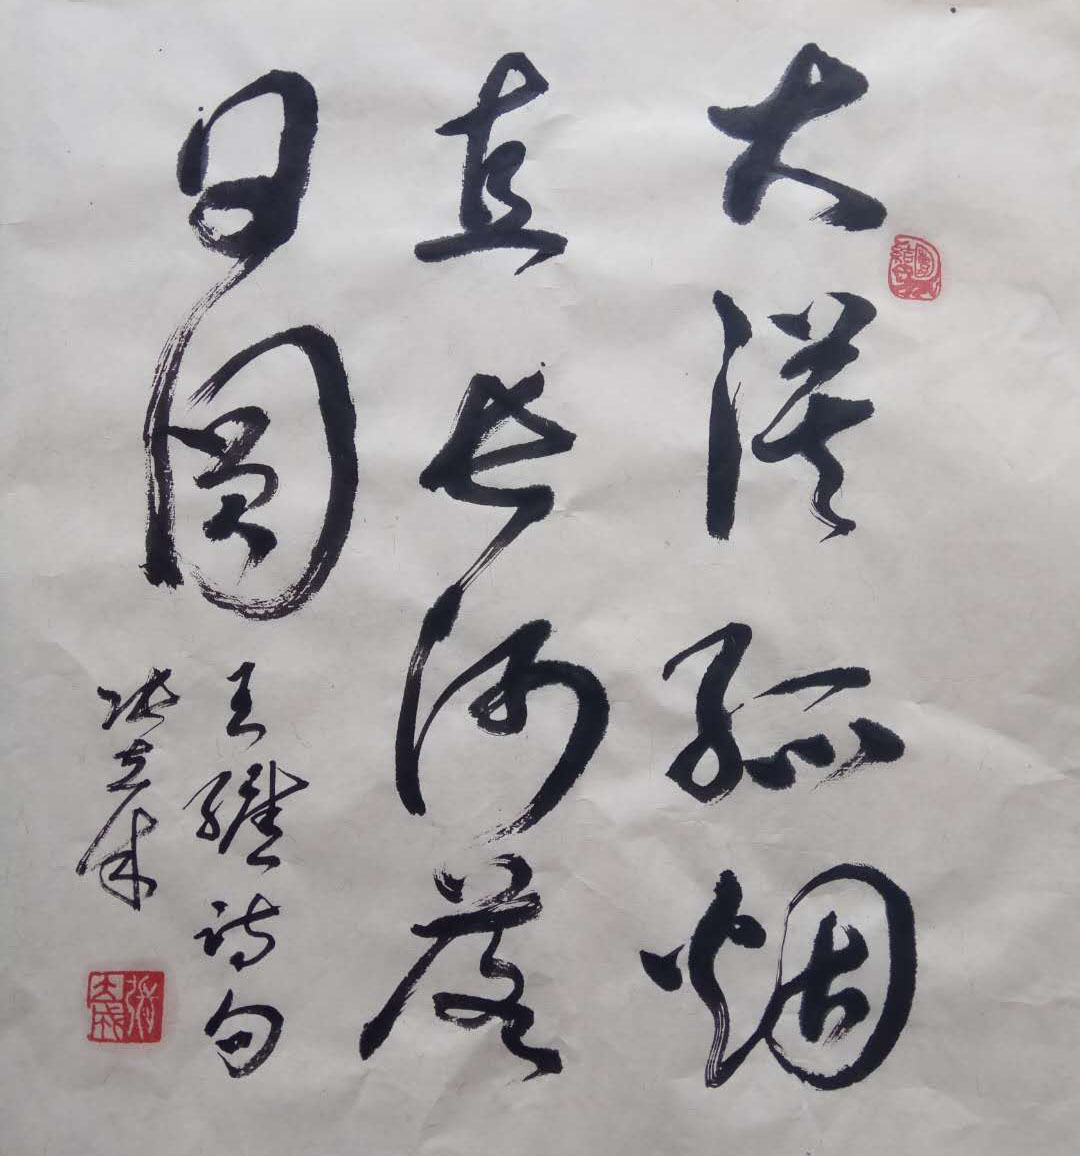 大漠孤烟
直长河落
日圆
王維诗句
张立